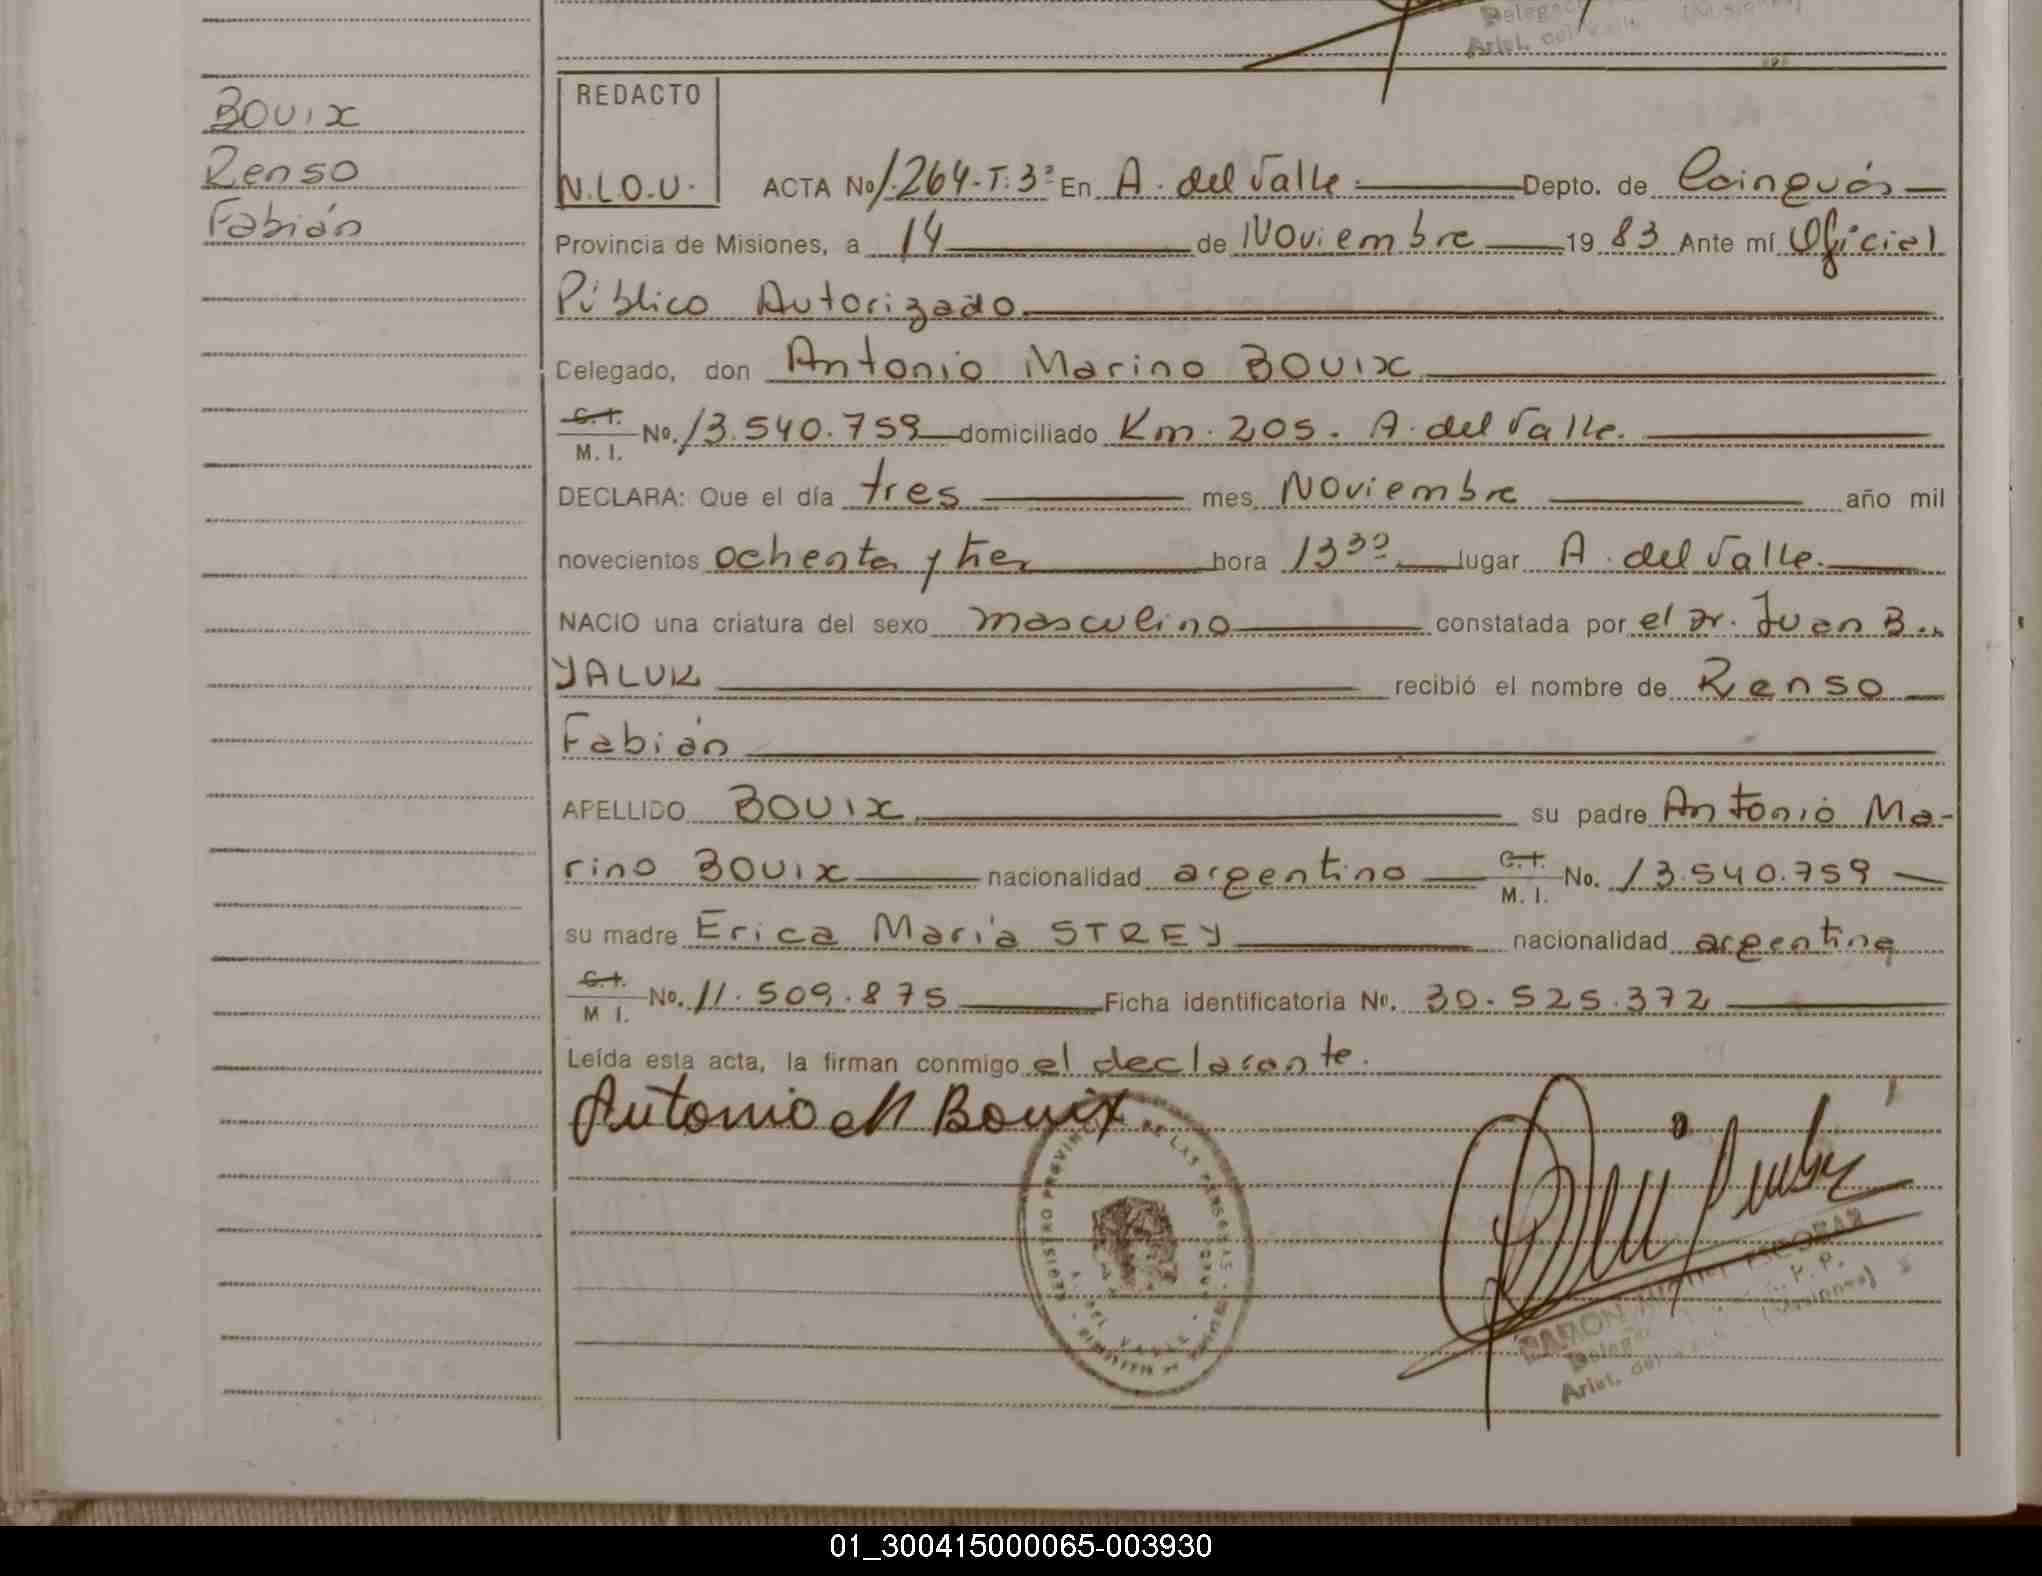 Ariel. del Valle (Misiones)
BOUIX
Renso
Fabián
REDACTO
N.L.O.U.
ACTA No 1.264-T.3º En A. del Valle. Depto. de Cainguás
Provincia de Misiones, a 14 de Noviembre 19 83 Ante mí Oficial
Público Autorizado.
Celegado, don Antonio Marino BOUIX
C.I. M. I. No. 13.540.759 domiciliado Km. 205. A. del Valle.
DECLARA: Que el día tres mes Noviembre año mil
novecientos ochenta y tres hora 13 30 lugar A. del Valle.
NACIO una criatura del sexo masculino constatada por el Dr. Juan B..
YALUK recibió el nombre de Renso
Fabián
APELLIDO BOUIX su padre Antonio Ma-
rino BOUIX nacionalidad argentino C.I. M. I. No. 13.540.759
su madre Erica María STREY nacionalidad argentina
C.I. M I. No. 11.509.875 Ficha identificatoria No. 30.525.372
Leída esta acta, la firman conmigo el declarante.
Antonio M Bouix
REGISTRO PROVINCIAL DE LAS PERSONAS
A. DEL VALLE
RAMON ESCOBAR
Ariel. del Valle (Misiones)
01_300415000065-003930